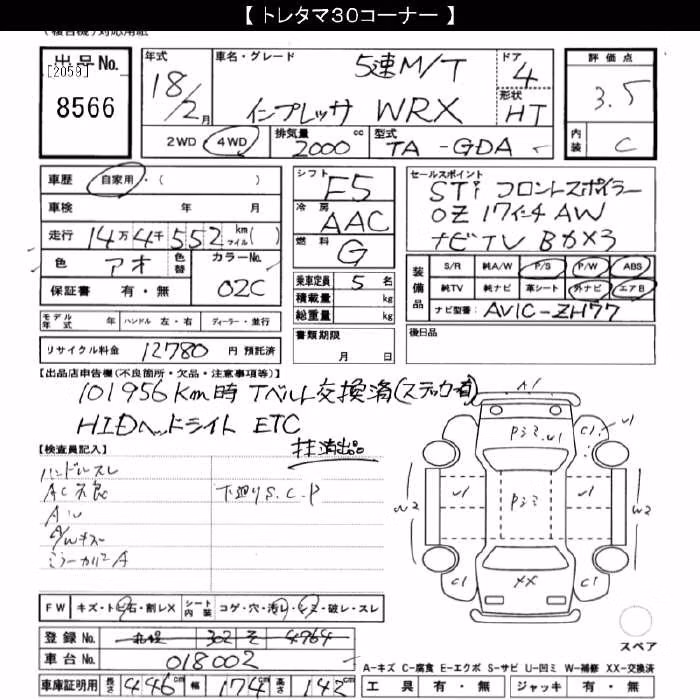 【 トレタマ30コーナー 】
(複合機)対応用紙
出品No.
[2059]
8566
年式 18/2月
車名・グレード 5速M/T
インプレッサ WRX
ドア 4
形状 HT
評価点 3.5
内装 C
2WD 4WD 排気量 2000 cc 型式 TA-GDA
車歴 自家用・( )
車検 年 月
走行 14万4千552 km マイル( )
色 アオ 色替 カラーNo. 02C
保証書 有・無
シフト F5
冷房 AAC
燃料 G
乗車定員 5 名
積載量 kg
総重量 kg
書類期限
月 日
セールスポイント
STi フロントスポイラー
OZ 17インチ AW
ナビTV Bカメラ
装備品 S/R 純A/W P/S P/W ABS
純TV 純ナビ 革シート 外ナビ エアB
ナビ型番: AVIC-ZH77
後日品
モデル年式 年 ハンドル 左・右 ディーラー・並行
リサイクル料金 12780 円 預託済
【出品店申告欄(不良箇所・欠品・注意事項等)】
101956Km時 Tベルト交換済(ステッカー有)
HIDヘッドライト ETC
抹消出品
【検査員記入】
ハンドルスレ
AC不良 下廻りS.C.P
A/Wキズ
ミラーカバーA
FW キズ・トビ石・割レX シート内装 コゲ・穴・汚レ・シミ・破レ・スレ
登録No. 札幌 302 そ 4964
車台No. 018002
車庫証明用 長さ 446cm 幅 174cm 高さ 142cm
A1
P33.U1
C1 U1
U1 P33 U1
W2 W2
C1 XX C1
スペア
A-キズ C-腐食 E-エクボ S-サビ U-凹ミ W-補修 XX-交換済
工具 有・無 ジャッキ 有・無